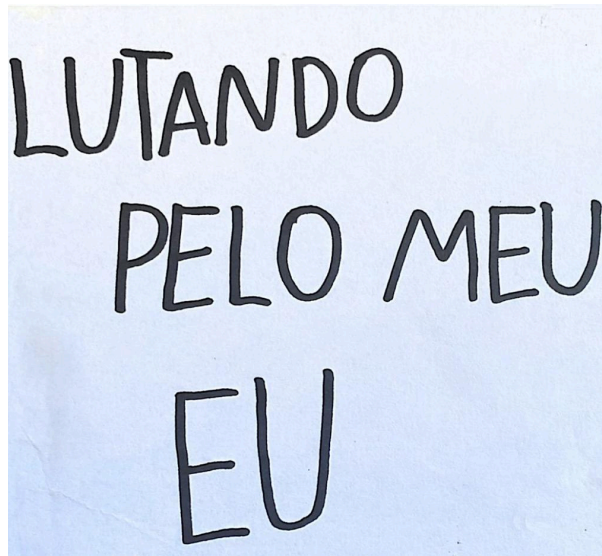 LUTANDO
PELO MEU
EU